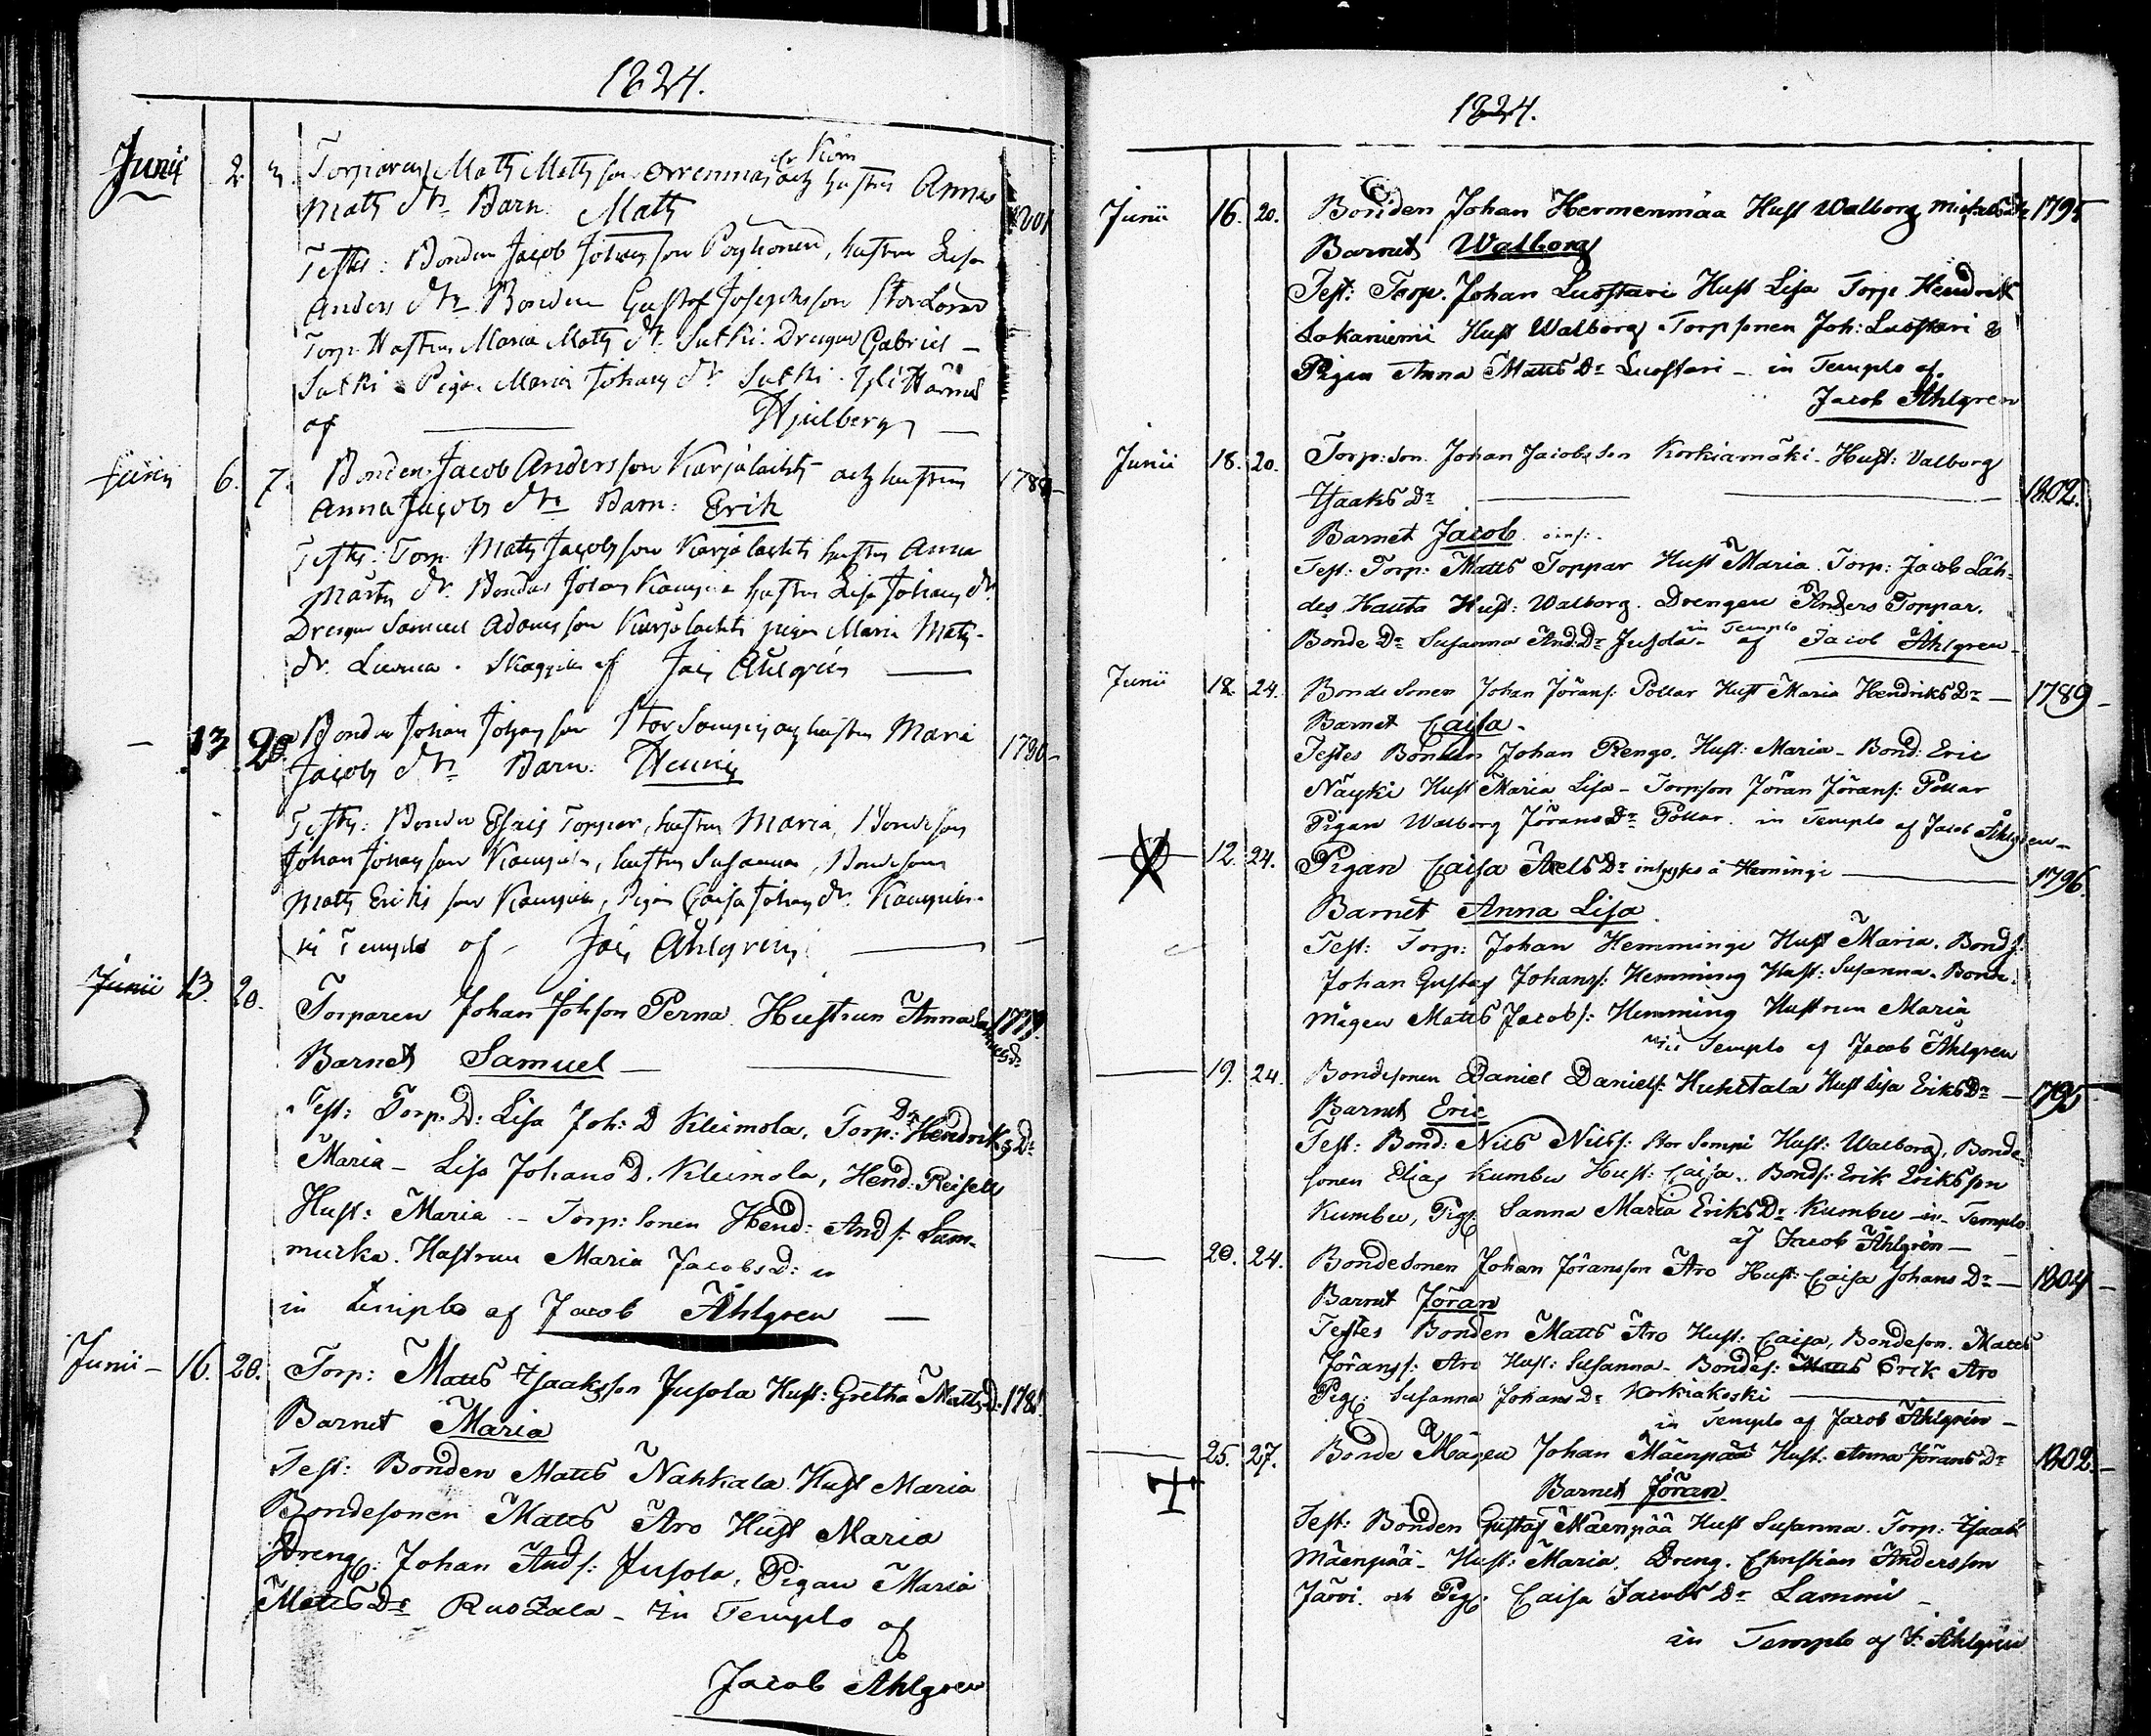 1824.
Junii 2. 3. Torparen Matts Matts son Orrenmaa och hustru Anna
Matts dr. Barn. Matts 1801
Testes: Bonden Jacob Johansson Pöyhonen, hustru Lisa
Anders dr. Bonden Gustaf Josephsson StorLoma
Torp. Hustru Maria Matts dr. Sutki. Drengen Gabriel
Sutki Pigan Maria Johans dr Sutki. YliHärmä
af Hjulberg
Junii 6. 7. Bonden Jacob Andersson Karjalachti och hustru 178
Anna Jacobs dr. Barn: Erik
Testes: Torp. Matts Jacobsson Karjalachti hustru Anna
Mårts dr. Bonden Johan hustru Lisa Johans dr.
Drengen Samuel Adamsson Karjalachti pigan Maria Matts
dr. Luoma. af Jac Åhlgren
13 20 Bonden Johan Johansson Stor Sompi och hustru Maria 1780
Jacobs dr. Barn: Henric
Testes: Bonden Esais Toppar, hustru Maria, Bondeson
Johan Johansson, hustru Susanna, Bondesonen
Matts Eriks son, Pigan Caisa Johans dr.
in Templo af Jac Åhlgren
Junii 13. 20. Torparen Johan Johsson Perna Hustrun Anna 1779.
Barnet Samuel
Test: Torp. D: Lisa Joh: D Kleimola, Torp: Dr Hendriks Dr
Maria - Lisa Johans D. Kleimola, Hend: Reisell
Hust: Maria - Torp: Sonen Hend: And s: Sam-
murka. Hustrun Maria Jacobs D:
in templo af Jacob Åhlgren
Junii 16. 20. Torp: Matts Isaaksson Jusola Hust: Gretha Matts D. 178
Barnet Maria
Test: Bonden Matts Nahkala Hust Maria
Bondesonen Matts Aro Hust Maria
Dreng: Johan Ands: Jusola, Pigan Maria
Matts Dr Ruszala - in Templo af
Jacob Åhlgren
1824.
Junii 16. 20. Bonden Johan Hermenmäa Hust Walborg Michelsdr 1795
Barnet Walborg
Test: Torp. Johan Luostari Hust Lisa Torp Hendrik
Lokaniemi Hust Walborg Torpsonen Joh: Luostari &
Pigan Anna Matts Dr Luostari - in Templo af
Jacob Åhlgren
Junii 18. 20. Torp: son Johan Jacobsson Korkiamäki Hust: Valborg
Isaaks Dr 1802.
Barnet Jacob
Test: Torp: Matts Toppar Hust Maria. Torp: Jacob Läh-
des Hauta Hust: Walborg. Drengen Anders Toppar.
Bonde Dr Susanna And: Dr Jusola - in Templo af Jacob Åhlgren
Junii 18. 24. Bonde Sonen Johan Jörans: Pollar Hust Maria Hendriks Dr 1789
Barnet Caisa
Testes Bonden Johan Rengo. Hust: Maria - Bond: Eric
Näyki Hust Maria Lisa - Torpson Jöran Jörans: Pollar
Pigan Walborg Jörans Dr Pollar. in Templo af Jacob Åhlgren
12. 24. Pigan Caisa Axels Dr inhyses å Hemingi 1796.
Barnet Anna Lisa
Test: Torp: Johan Hemmingi Hust Maria. Bonds:
Johan Gustaf Johans: Hemming Hust: Susanna. Bonde
mågen Matts Jacobs: Hemming Hustrun Maria
in Templo af Jacob Åhlgren
19. 24. Bondesonen Daniel Daniels: Huhtala Hust Lisa Eriks Dr 1795
Barnet Eric
Test: Bond: Nils Nilss: Stor Sompi Hust: Walborg, Bonde-
sonen Elias Kumbu Hust: Caisa. Bonds: Erik Eriksson
Kumbu, Pig: Sanna Maria Eriks Dr Kumbu in Templo
af Jacob Åhlgren
20. 24. Bondesonen Johan Jöransson Aro Hust: Caisa Johans Dr 1804
Barnet Jöran
Testes Bonden Matts Aro Hust: Caisa, Bondeson. Matts
Jöranss: Aro Hust: Susanna - Bondes: Erik Aro
Pig: Susanna Johans Dr Korkiakoski
in Templo af Jacob Åhlgren
25. 27. Bonde Mågen Johan Mäenpää Hust: Anna Jörans Dr 1802.
Barnet Jöran
Test: Bonden Gustaf Mäenpää Hust Susanna. Torp: Isaak
Mäenpää - Hust: Maria. Dreng. Christian Andersson
Järvi. och Pig: Caisa Jacobs Dr Lammi
in Templo af J: Åhlgren